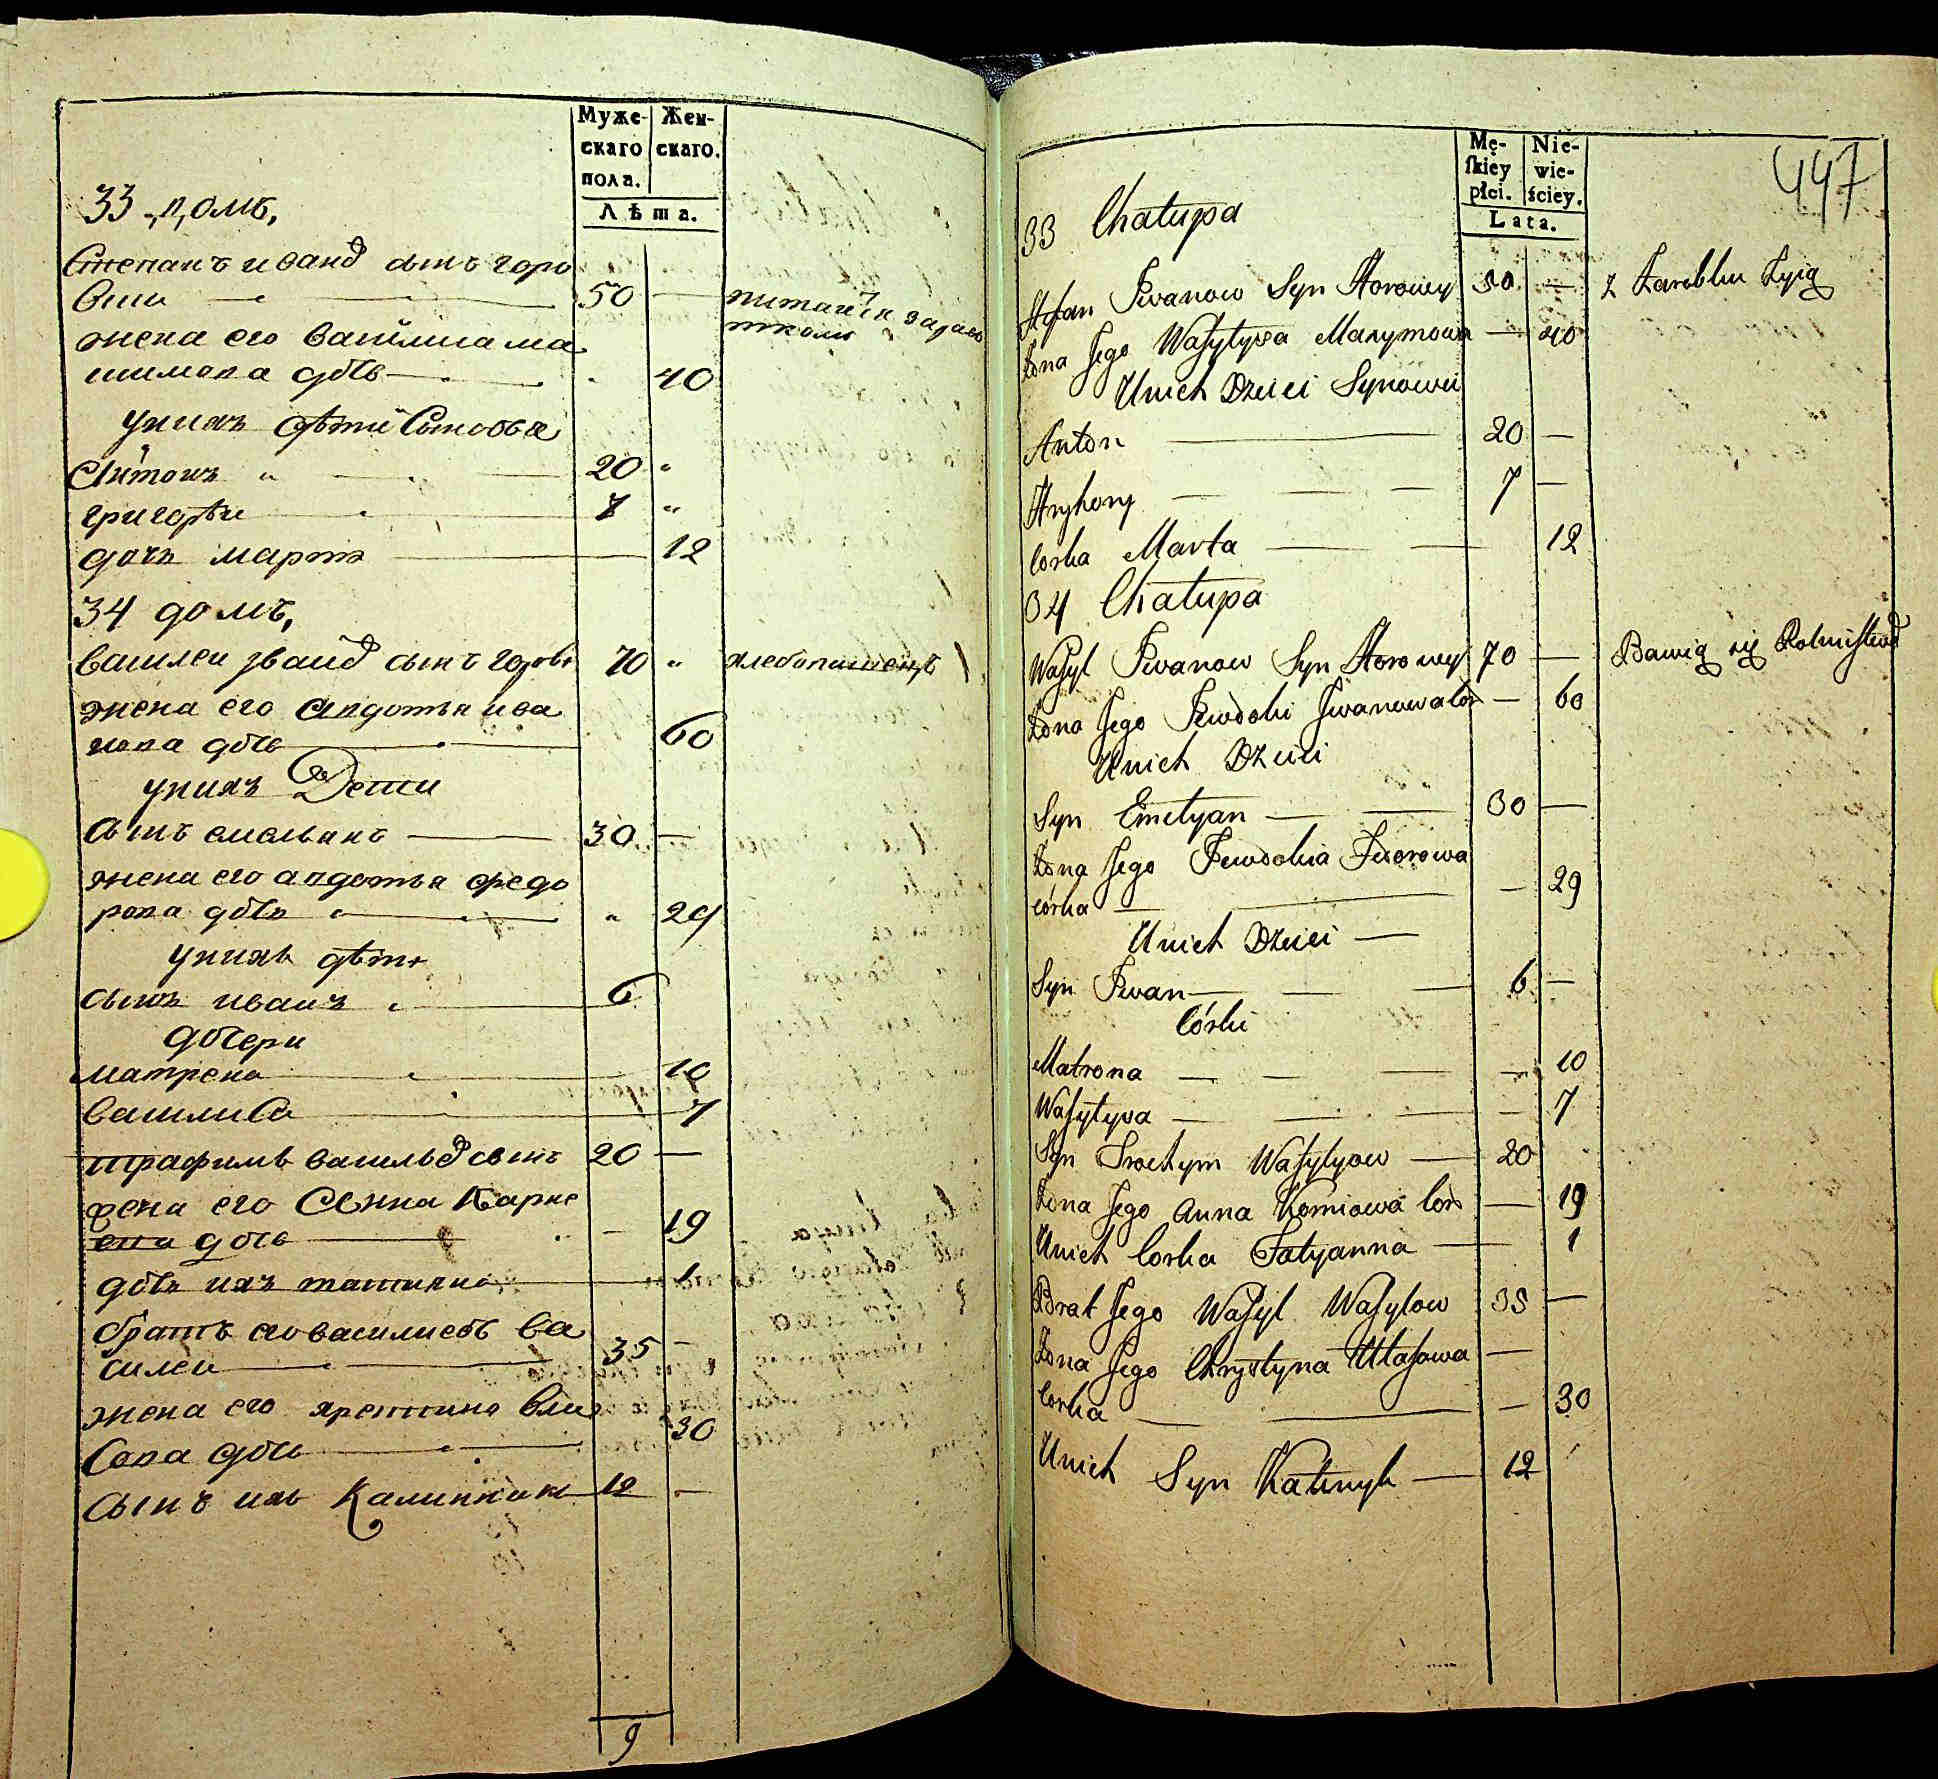 Муже-
скаго
пола.
Жен-
скаго.
Лѣта.
33 домъ,
Степанъ иванов сынъ горо
вии 50
питаеtся зара
жена его василиса ма
ѯимова дочь 40
униих дѣти Сыновя
Антонъ 20
григорѣи 7
дочь марта 12
34 домъ,
василеи иванов сынъ горови 70 хлебопашецъ
жена его Авдотья ива
нова дочь 60
униих Дети
сынъ емельянъ 30
жена его авдотья федо
рова дочь 29
униих дѣти
сынъ иванъ 6
дочери
матрена 10
василиса 7
трафимъ васильев сынъ 20
жена его Анна Карне
ева дочь 19
дочь их татияна 1
братъ его василиевъ ва
силеи 35
жена его хрестина вла
сова дочь 30
сынъ ихъ Калинникъ 12
9
447
Mę-
skiey
płci.
Nie-
wie-
ściey.
Lata.
33 Chałupa
Stefan Iwanow Syn Horowy 50 — z Zarobku Żyią
Żona Jego Wasylysa Maxymowa — 40
Unich Dzieci Synowii
Anton 20 —
Hryhory 7 —
Corka Marta 12
34 Chałupa
Wasyl Iwanow Syn Horowy 70 — Bawią się Rolnistwe
Żona Jego Jewdoki Iwanowa Cor — 60
Unich Dzieci
Syn Emelyan 30 —
Żona Jego Jewdokia Fedorowa
Córka — 29
Unich Dzieci
Syn Iwan 6 —
Córki
Matrona — 10
Wasylysa — 7
Syn Trochym Wasylyow 20
Żona Jego Anna Korniowa Cor — 19
Unich Corka Tatyanna 1
Brat Jego Wasyl Wasylow 35 —
Żona Jego Chrystyna Ułasowa —
Corka — 30
Unich Syn Kalenyk 12